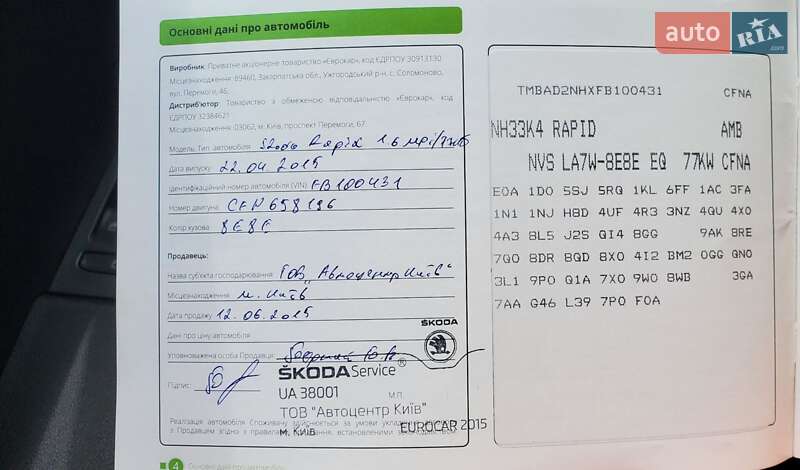 Основні дані про автомобіль
auto RIA .com
Виробник: Приватне акціонерне товариство «Єврокар», код ЄДРПОУ 30913130
Місцезнаходження: 89460, Закарпатська обл., Ужгородський р-н, с. Соломоново,
вул. Перемоги, 46;
Дистриб'ютор: Товариство з обмеженою відповідальністю «Єврокар», код
ЄДРПОУ 32384621
Місцезнаходження: 03062, м. Київ, проспект Перемоги, 67
Модель. Тип автомобіля Skoda Rapid 1.6 mpi/77кВ
Дата випуску 22.04.2015
Ідентифікаційний номер автомобіля (VIN) FB100431
Номер двигуна CFN 698196
Колір кузова 8E8E
Продавець:
Назва суб'єкта господарювання ТОВ "Автоцентр Київ"
Місцезнаходження м. Київ
Дата продажу 12.06.2015
Дані про ціну автомобіля
Уповноважена особа Продавця
Підпис:
ŠKODA
ŠKODA Service®
UA 38001
М.П.
ТОВ "Автоцентр Київ"
м. Київ
EUROCAR 2015
Реалізація автомобіля Споживачу здійснюється за умови
з Продавцем згідно з правилами встановленими
4 Основні дані про автомобіль
TMBAD2NHXFB100431 CFNA
NH33K4 RAPID AMB
NVS LA7W-8E8E EQ 77KW CFNA
E0A 1D0 5SJ 5RQ 1KL 6FF 1AC 3FA
1N1 1NJ H8D 4UF 4R3 3NZ 4QU 4X0
4A3 8L5 J2S QI4 8GG 9AK 8RE
7Q0 8DR 8QD 8X0 4I2 BM2 0GG QN0
3L1 9P0 Q1A 7X0 9W0 8WB 3GA
7AA G46 L39 7P0 F0A